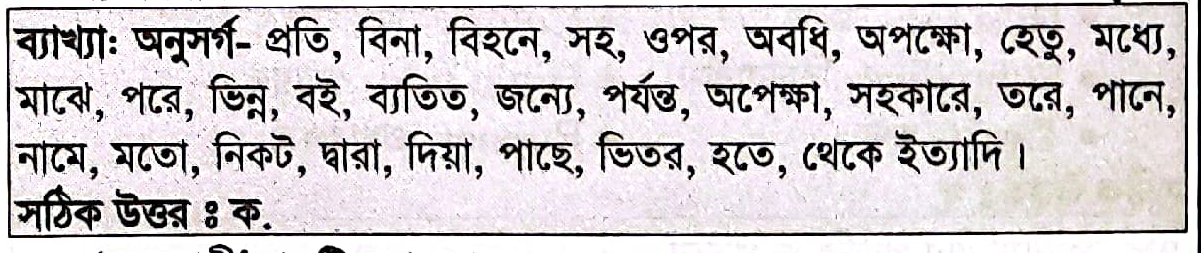 ব্যাখ্যা: অনুসর্গ- প্রতি, বিনা, বিহনে, সহ, ওপর, অবধি, অপক্ষো, হেতু, মধ্যে,
মাঝে, পরে, ভিন্ন, বই, ব্যতিত, জন্যে, পর্যন্ত, অপেক্ষা, সহকারে, তরে, পানে,
নামে, মতো, নিকট, দ্বারা, দিয়া, পাছে, ভিতর, হতে, থেকে ইত্যাদি।
সঠিক উত্তর ঃ ক.